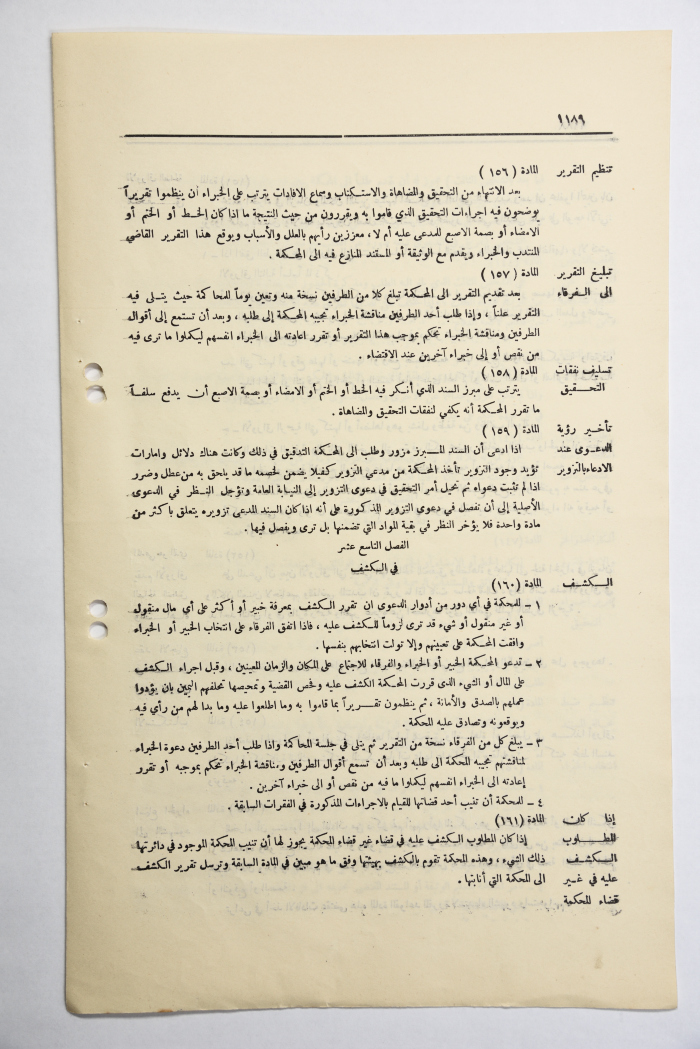 ١١٨٩
تنظيم التقرير المادة (١٥٦)
بعد الانتهاء من التحقيق والمضاهاة والاستكتاب وسماع الافادات يترتب على الخبراء أن ينظموا تقريراً
يوضحون فيه اجراءات التحقيق الذي قاموا به ويقررون من حيث النتيجة ما اذا كان الخط أو الختم أو
الامضاء أو بصمة الاصبع للمدعى عليه أم لا ، معززين رأيهم بالعلل والأسباب ويوقع هذا التقرير القاضي
المنتدب والخبراء ويقدم مع الوثيقة أو المستند المنازع فيه الى المحكمة .
تبليغ التقرير المادة (١٥٧)
الى الفرقاء بعد تقديم التقرير الى المحكمة تبلغ كلا من الطرفين نسخة منه وتعين يوماً للمحاكمة حيث يتلى فيه
التقرير علناً ، وإذا طلب أحد الطرفين مناقشة الخبراء تجيبه المحكمة إلى طلبه ، وبعد أن تستمع إلى أقوال
الطرفين ومناقشة الخبراء تحكم بموجب هذا التقرير أو تقرر اعادته الى الخبراء انفسهم ليكملوا ما ترى فيه
من نقص أو إلى خبراء آخرين عند الاقتضاء .
تسليف نفقات المادة (١٥٨)
التحقيق يترتب على مبرز السند الذي أنكر فيه الخط أو الختم أو الامضاء أو بصمة الاصبع أن يدفع سلفاً
ما تقرر المحكمة أنه يكفي لنفقات التحقيق والمضاهاة .
تأخير رؤية المادة (١٥٩)
الدعوى عند اذا ادعى أن السند المبرز مزور وطلب الى المحكمة التدقيق في ذلك وكانت هناك دلائل وامارات
الادعاء بالتزوير تؤيد وجود التزوير تأخذ المحكمة من مدعي التزوير كفيلا يضمن لخصمه ما قد يلحق به من عطل وضرر
اذا لم تثبت دعواه ثم تحيل أمر التحقيق في دعوى التزوير إلى النيابة العامة وتؤجل النظر في الدعوى
الأصلية إلى أن تفصل في دعوى التزوير المذكورة على أنه اذا كان السند المدعى تزويره يتعلق باكثر من
مادة واحدة فلا يؤخر النظر في بقية المواد التي تضمنها بل ترى ويفصل فيها .
الفصل التاسع عشر
في الكشف
الكشف المادة (١٦٠)
١ – للمحكمة في أي دور من أدوار الدعوى ان تقرر الكشف بمعرفة خبير أو أكثر على أي مال منقول
أو غير منقول أو شيء قد ترى لزوماً للكشف عليه ، فاذا اتفق الفرقاء على انتخاب الخبير أو الخبراء
وافقت المحكمة على تعيينهم وإلا تولت انتخابهم بنفسها .
٢ – تدعو المحكمة الخبير أو الخبراء والفرقاء للاجتماع على المكان والزمان المعينين ، وقبل اجراء الكشف
على المال أو الشيء الذى قررت المحكمة الكشف عليه وفحص القضية وتمحيصها تحلفهم اليمين بان يؤدوا
عملهم بالصدق والأمانة ، ثم ينظمون تقريراً بما قاموا به وما اطلعوا عليه وما بدا لهم من رأي فيه
ويوقعونه وتصادق عليه المحكمة .
٣ – يبلغ كل من الفرقاء نسخة من التقرير ثم يتلى في جلسة المحاكمة واذا طلب أحد الطرفين دعوة الخبراء
لمناقشتهم تجيبه المحكمة الى طلبه وبعد أن تسمع أقوال الطرفين ومناقشة الخبراء تحكم بموجبه أو تقرر
إعادته الى الخبراء انفسهم ليكملوا ما فيه من نقص أو الى خبراء آخرين .
٤ – للمحكمة أن تنيب أحد قضاتها للقيام بالاجراءات المذكورة في الفقرات السابقة .
إذا كان المادة (١٦١)
المطلوب إذا كان المطلوب الكشف عليه في قضاء غير قضاء المحكمة يجوز لها أن تنيب المحكمة الموجود في دائرتها
الكشف ذلك الشيء ، وهذه المحكمة تقوم بالكشف بهيئتها وفق ما هو مبين في المادة السابقة وترسل تقرير الكشف
عليه في غير الى المحكمة التي أنابتها .
قضاء المحكمة